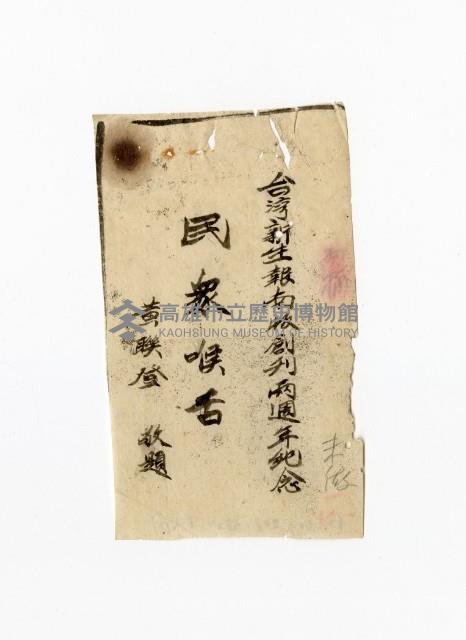 台湾新生報南版創刊兩週年紀念
民衆喉舌
黄联登 敬題
未做
高雄市立歷史博物館
KAOHSIUNG MUSEUM OF HISTORY